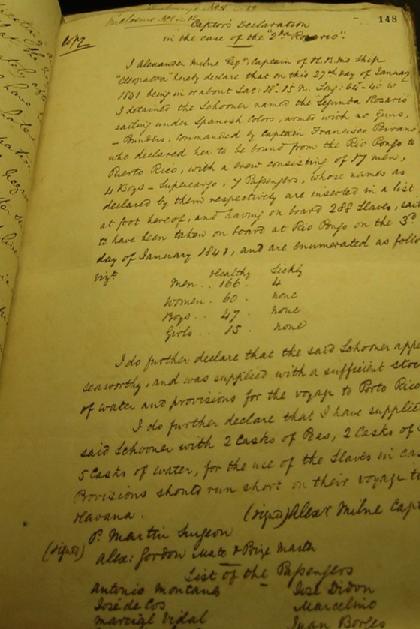 148
Copy
Captor's Declaration
in the case of the "2da Rosario".
I Alexander Milne Esqr. Captain of H.B.M. Ship
"Cleopatra" hereby declare that on this 27th day of January
1841 being in or about Lat: 18°. 15 N. Log: 64. 40 W
I detained the Schooner named the Segunda Rosario
sailing under Spanish Colors, armed with no Guns,
commanded by Captain Francisco
who declared her to be bound from the Rio Pongo to
Puerto Rico, with a crew consisting of 17 men,
4 Boys - Supercargo, 7 Passengers, whose names as
declared by them respectively are inserted in a list
at foot hereof, and having on board 288 Slaves, said
to have been taken on board at Rio Pongo on the 3d
day of January 1841, and are enumerated as follow
vizt.
Healthy Sickly
Men .. 166 . 4
Women . 60 . none
Boys .. 47 . none
Girls .. 15 . none
I do further declare that the said Schooner appe
seaworthy, and was supplied with a sufficient stoc
of water and provisions for the voyage to Porto Rico
I do further declare that I have supplie
said Schooner with 2 Casks of Peas, 2 Casks of
5 Casks of water, for the use of the Slaves in cas
Provisions should run short on their voyage to
Havana.
(signed) Alexr Milne Capt
P. Martin Surgeon
(signed)
Alex: Gordon Mate & Prize Master
List of the Passengers
Antonio Montane José Didon
José de los Marcelino
Marcial Vidal Juan Borges